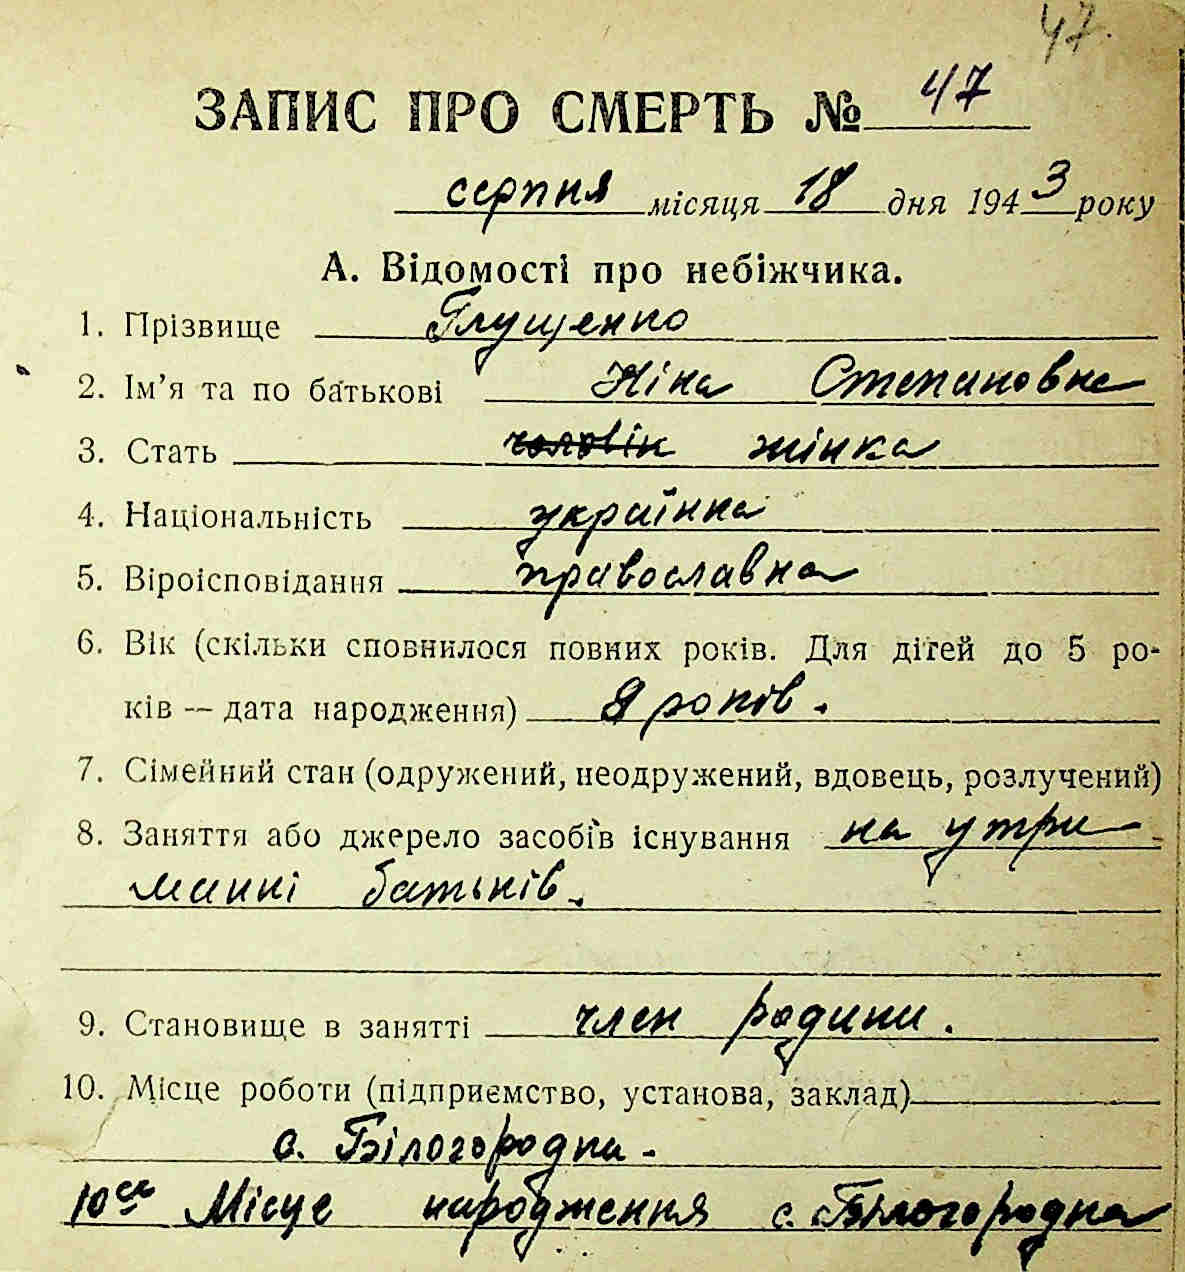 47.
ЗАПИС ПРО СМЕРТЬ № 47
серпня місяця 18 дня 1943 року
А. Відомості про небіжчика.
1. Прізвище Глущенко
2. Ім’я та по батькові Ніна Степановна
3. Стать чоловік жінка
4. Національність українка
5. Віроісповідання православна
6. Вік (скільки сповнилося повних років. Для дітей до 5 ро-
ків — дата народження) 8 років.
7. Сімейний стан (одружений, неодружений, вдовець, розлучений)
8. Заняття або джерело засобів існування на утри
манні батьків.
9. Становище в занятті член родини.
10. Місце роботи (підприємство, установа, заклад)
с. Білогородка -
10а Місце народження с. Білогородка